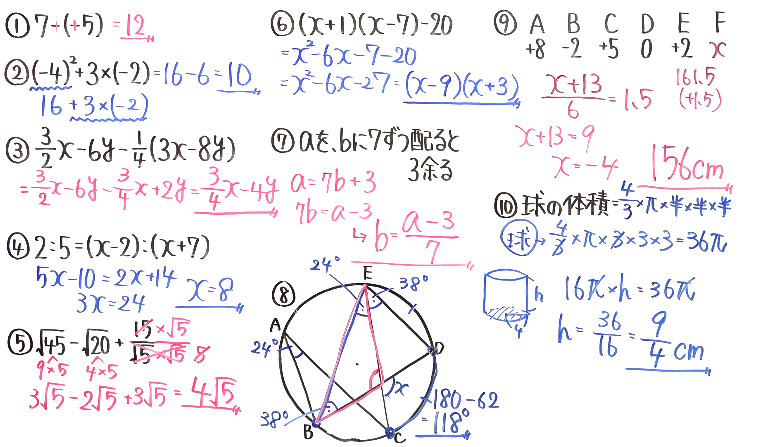 ① 7-(+5)=12
② (-4)²+3×(-2)=16-6=10
16+3×(-2)
③ 3/2x-6y-1/4(3x-8y)
=3/2x-6y-3/4x+2y=3/4x-4y
④ 2:5=(x-2):(x+7)
5x-10=2x+14
3x=24 x=8
⑤ √45-√20+15×√5/√5×√5 5
9×5 4×5
3√5-2√5+3√5=4√5
⑥ (x+1)(x-7)-20
=x²-6x-7-20
=x²-6x-27=(x-9)(x+3)
⑦ aを、bに7ずつ配ると
3余る
a=7b+3
7b=a-3
↳ b=a-3/7
⑧
24° E 38°
A
24°
D
x
38°
B C
180-62
=118°
⑨ A B C D E F
+8 -2 +5 0 +2 x
x+13/6=1.5
161.5
(+1.5)
x+13=9
x=-4 156cm
⑩ 球の体積=4/3×π×半×半×半
球→4/3×π×3×3×3=36π
h
4
16π×h=36π
h=36/16=9/4cm